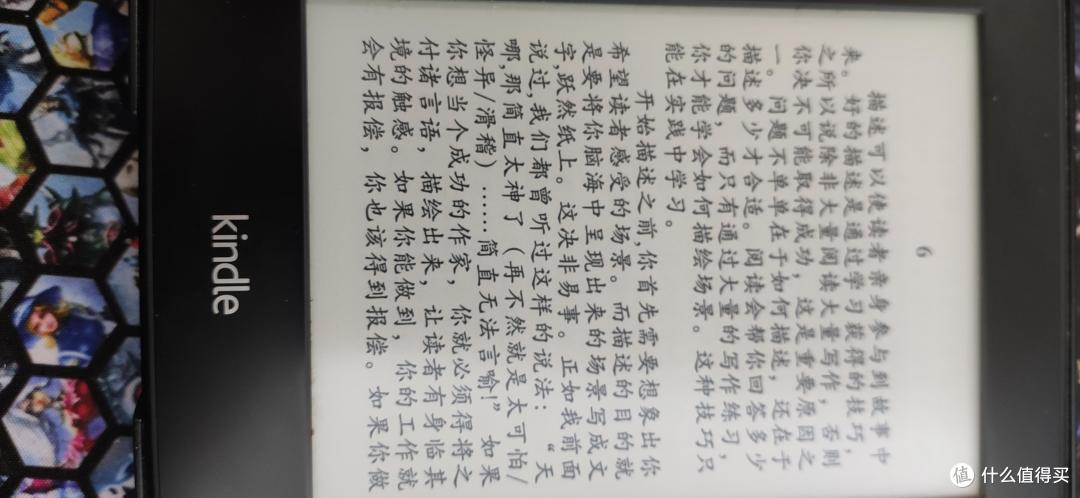 6
描述可以使读者亲身参与到故事中
来。
好的描述是通过学习获得的技巧，
之所以说除非大量阅读大量写作，否则
你决不可能取得成功，这是重要原因之
一。问题不单单在于如何描述，还在于
描述多少才合适。阅读会帮你回答多少
的问题，而只有通过大量的写作练习，
你才能学会如何描绘场景。这种技巧只
能在实践中学习。
开始描述之前，你首先需要想象出你
希望读者感受的场景。而描述的目的就
是要将你脑海中呈现出来的场景写成文
字，跃然纸上。这决非易事。正如我前面
说过，我们都曾听过这样的说法：“天
哪，那简直太神了（再不然就是太可怕/
怪异/滑稽）……简直无法言喻！”如果
你想当个成功的作家，你就必须得将之
付诸言语，描绘出来，让读者有身临其
境的触感。如果你能做到，你的工作就
会有报偿，你也该得到报偿。如果你做
kindle
值 什么值得买